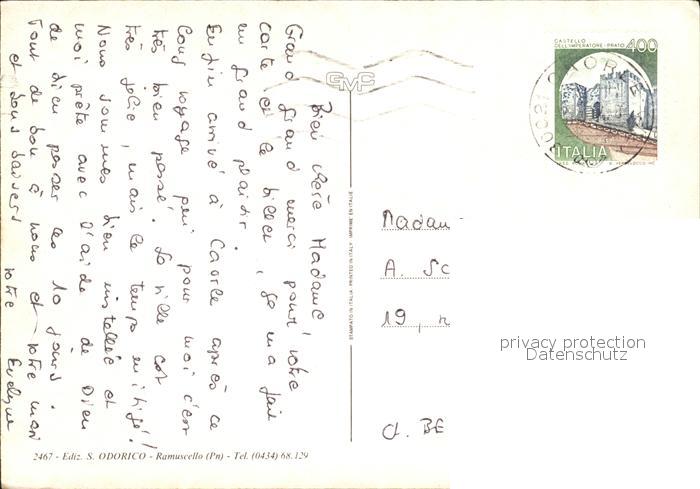 Bien chère Madame
Grand grand merci pour votre
carte et le billet, ça m'a fait
un grand plaisir.
Enfin arrivé à Caorle après ce
long voyage qui pour moi c'est
très bien passé. La ville est
très jolie, mais le temps mitigé!
Nous sommes bien installée et
moi prête avec l'aide de Dieu
de bien passer ces 10 jours.
Tout de bon à vous et votre mari
et bons baisers
votre Evelyne
CASTELLO
DELL'IMPERATORE - PRATO 400
CAORLE
ITALIA
GMC
STAMPATO IN ITALIA PRINTED IN ITALY IMPRIME EN ITALIE
Madam
A. Sc
19,
CH. BE
privacy protection
Datenschutz
2467 - Ediz. S. ODORICO - Ramuscello (Pn) - Tel. (0434) 68.129